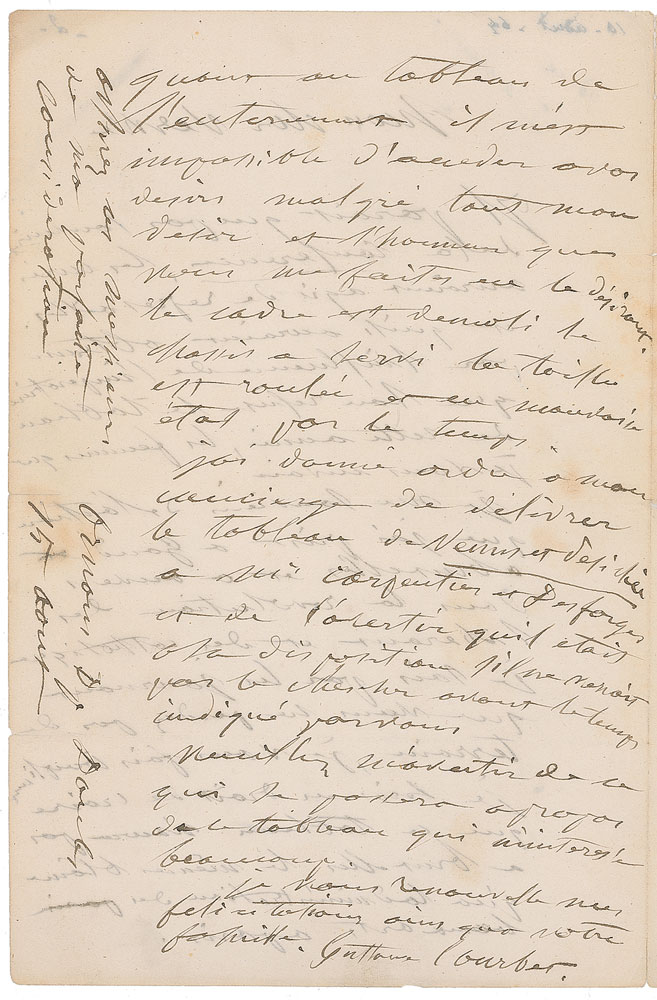 10 - aout - 64
- 2 -
quant au tableau de
l'enterrement il m'est
impossible d'acceder a vos
desirs malgré tout mon
desir et l'honneur que
vous me faites en le désirant.
le cadre est demoli le
chassis a servi la toille
est roulée et en mauvais
état par le temps
jai donné ordre à mon
concierge de délivrer
le tableau de Venus et Psiché
a Mr carpentier et Desforges
et de l'avertir quil était
a sa disposition s'il ne venait
pas le chercher avant le temps
indiqué par vous
veuillez m'avertir de ce
qui se passera a propos
de ce tableau qui m'interesse
beaucoup.
je vous renouvelle mes
felicitations ainsi qua votre
famille. Gustave Courbet.
offrez à messieurs
de ma parfaite
consideration
Ornans D. Doubs
15 aout